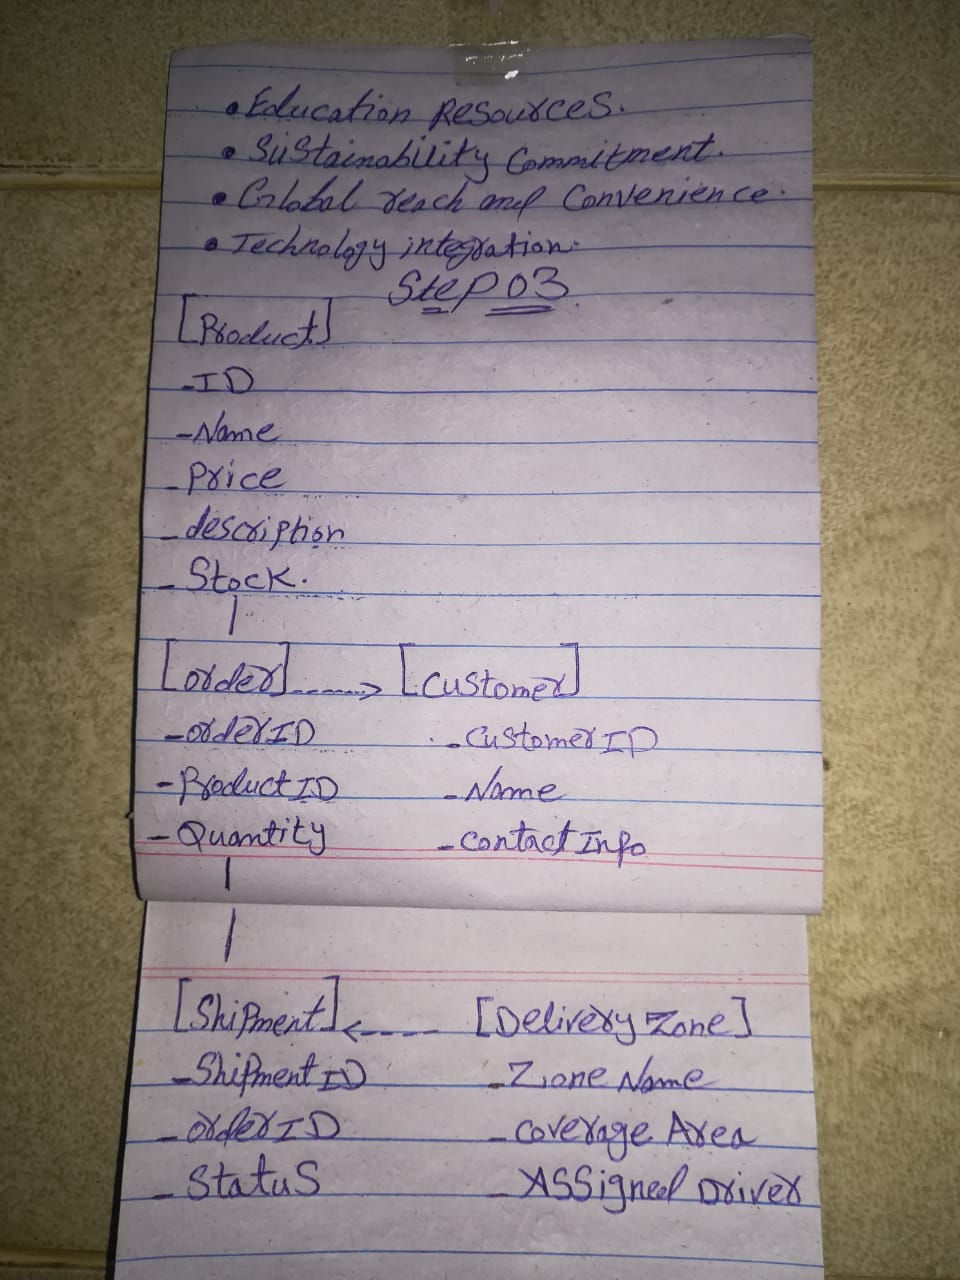 • Education Resources.
• Sustainability Commitment.
• Global reach and Convenience.
• Technology integration.
Step 03
[Product]
- ID
- Name
- Price
- description
- Stock.
[order] -----> [Customer]
- orderID - CustomerID
- Product ID - Name
- Quantity - Contact Info
[Shipment] <---- [Delivery Zone]
- Shipment ID - Zone Name
- order ID - Coverage Area
- Status - Assigned Driver